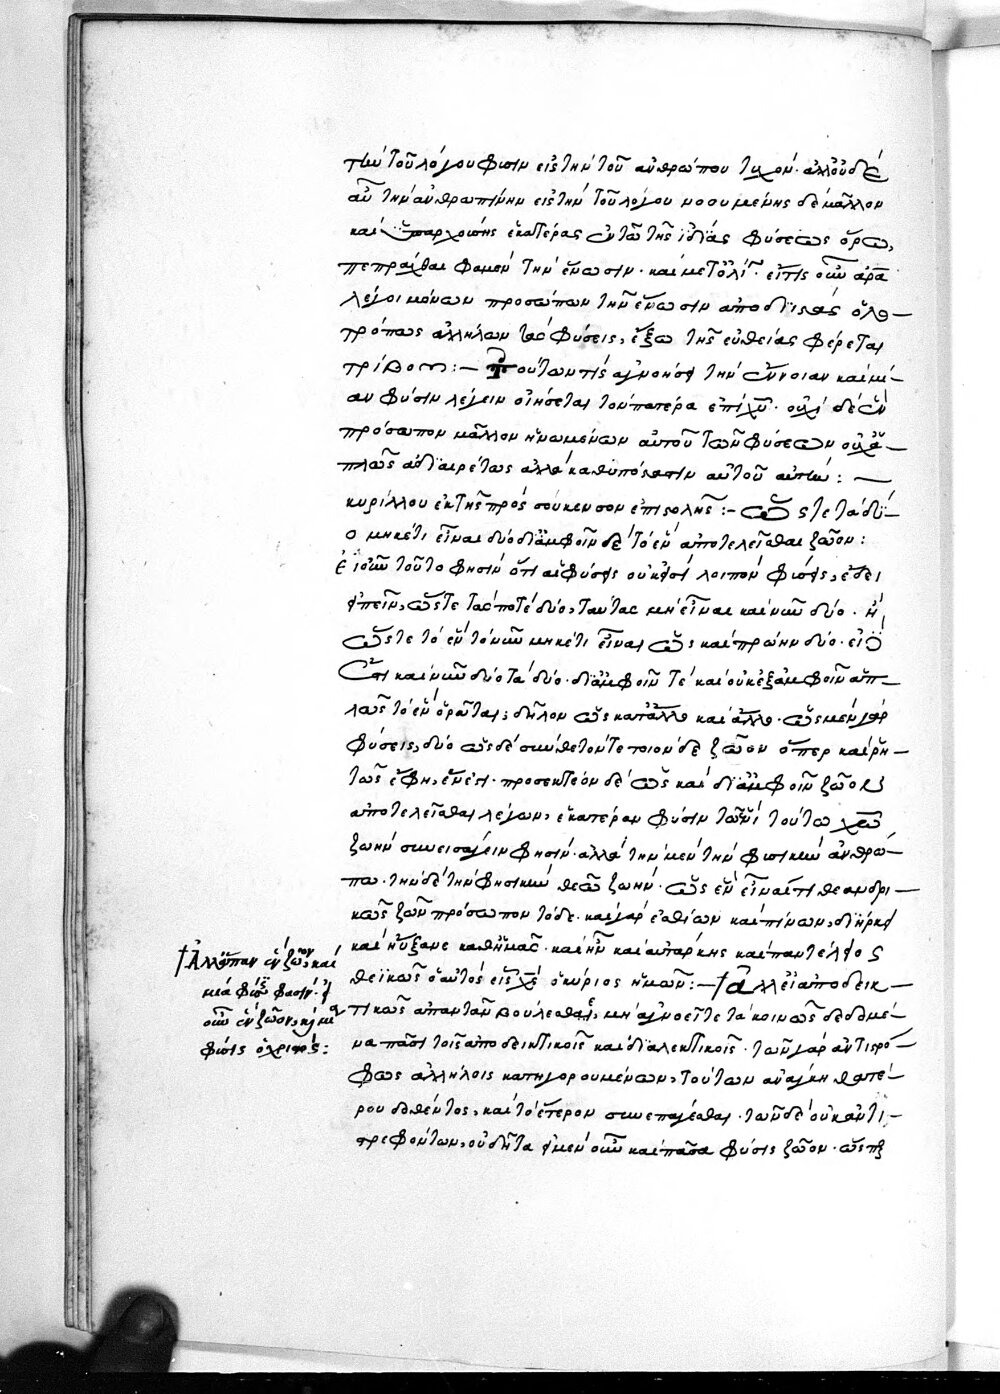 τὴν τοῦ λόγου φύσιν εἰς τὴν τοῦ ἀνθρώπου τυχόν· ἀλλ' οὐδὲ
αὖ τὴν ἀνθρωπίνην εἰς τὴν τοῦ λόγου νοουμένης δὲ μᾶλλον
καὶ ὑπαρχούσης ἑκατέρας ἐν τῶ τῆς ἰδίας φύσεως ὅρω,
πεπρᾶχθαι φαμὲν τὴν ἕνωσιν· καὶ μετ' ὀλί· εἴ τις οὖν ἄρα
λέγοι μόνων προσώπων τὴν ἕνωσιν ἀποδιϊστὰς ὁλο–
τρόπως ἀλλήλων τὰς φύσεις, ἔξω τῆς εὐθείας φέρεται
τρίβου:– Τούτων τίς ἀγνοήσει τὴν ἔννοιαν καὶ μί–
αν φύσιν λέγειν οἰήσεται τὸν πατέρα ἐπὶ χυ· οὐχὶ δὲ ἓν
πρόσωπον μᾶλλον ἡνωμένων αὐτοῦ τῶν φύσεων οὐχ ἁ–
πλῶς ἀδιαιρέτως ἀλλὰ καθυπόστασιν αὐτοῦ αὐτὴν:—
κυρίλλου ἐκ τῆς πρὸς σούκενσον ἐπιστολῆς:– ὥστε τὰ δύ–
ο μηκέτι εἶναι δύο δι' ἀμφοῖν δὲ τὸ ἓν ἀποτελεῖσθαι ζῶον:
Εἰ οὖν τοῦτο φησὶν ὅτι αἱ φύσεις οὐκ εἰσὶ λοιπὸν φύσεις, ἔδει
εἰπεῖν, ὥστε τὰς ποτὲ δύο, ταύτας μὴ εἶναι καὶ νῦν δύο· ἢ
ὥστε τὸ ἓν τὸ νῦν μηκέτι εἶναι ὡς καὶ πρώην δύο· εἰ δ
ἔτι καὶ νῦν δύο τὰ δύο· δι' ἀμφοῖν τὲ καὶ οὐκ ἐξ ἀμφοῖν ἁπ–
λῶς τὸ ἓν ὁρᾶται, δῆλον ὡς κατ' ἄλλο καὶ ἄλλο· ὡς μὲν γὰρ
φύσεις, δύο ὡς δὲ σύνθετόν τε ποιὸν δὲ ζῶον ὅπερ καὶ ῥη–
τῶς ἔφη, ἕν ἐστι· προσεκτέον δὲ ὡς καὶ δι' ἀμφοῖν ζῶον
ἀποτελεῖσθαι λέγων, ἑκατέραν φύσιν τῶ ἑνὶ τούτω χω
ζωὴν συνεισάγειν φησίν· ἀλλὰ τὴν μὲν τὴν φυσικὴν ἀνθρώ–
πω· τὴν δὲ τὴν φυσικὴν θεῶ ζωήν· ὡς ἓν εἶναί τι θεανδρι–
κῶς ζῶν πρόσωπον τόδε· καὶ γὰρ ἐσθίων καὶ πίνων, διήρκει
καὶ ηὔξανε καθ' ἡμᾶς· καὶ ἦν καὶ αὐτάρκης καὶ παντέλειος
θεϊκῶς ὁ αὐτὸς εἷς χς ὁ κύριος ἡμῶν:– †ἀλλ' εἰ ἀποδεικ–
τικῶς ἀπαντᾶν βούλεσθαι, μὴ ἀγνοεῖτε τὰ κοινῶς δεδομέ–
να πᾶσι τοῖς ἀποδεικτικοῖς καὶ διαλεκτικοῖς· τῶν γὰρ ἀντιστρό–
φως ἀλλήλοις κατηγορουμένων, τούτων ἀνάγκη θατέ–
ρου δοθέντος, καὶ τὸ ἕτερον συνεπάγεσθαι· τῶν δὲ οὐκ ἀντι–
τρεφόντων, οὐδῆτα εἰ μὲν οὖν καὶ πᾶσα φύσις ζῶον· ὥσπερ
†Ἀλλ' εἴπαν ἓν ζῶον, καὶ
μία φύσις φασίν· εἰ
οὖν ἓν ζῶον, καὶ μία
φύσις ὁ χριστός: